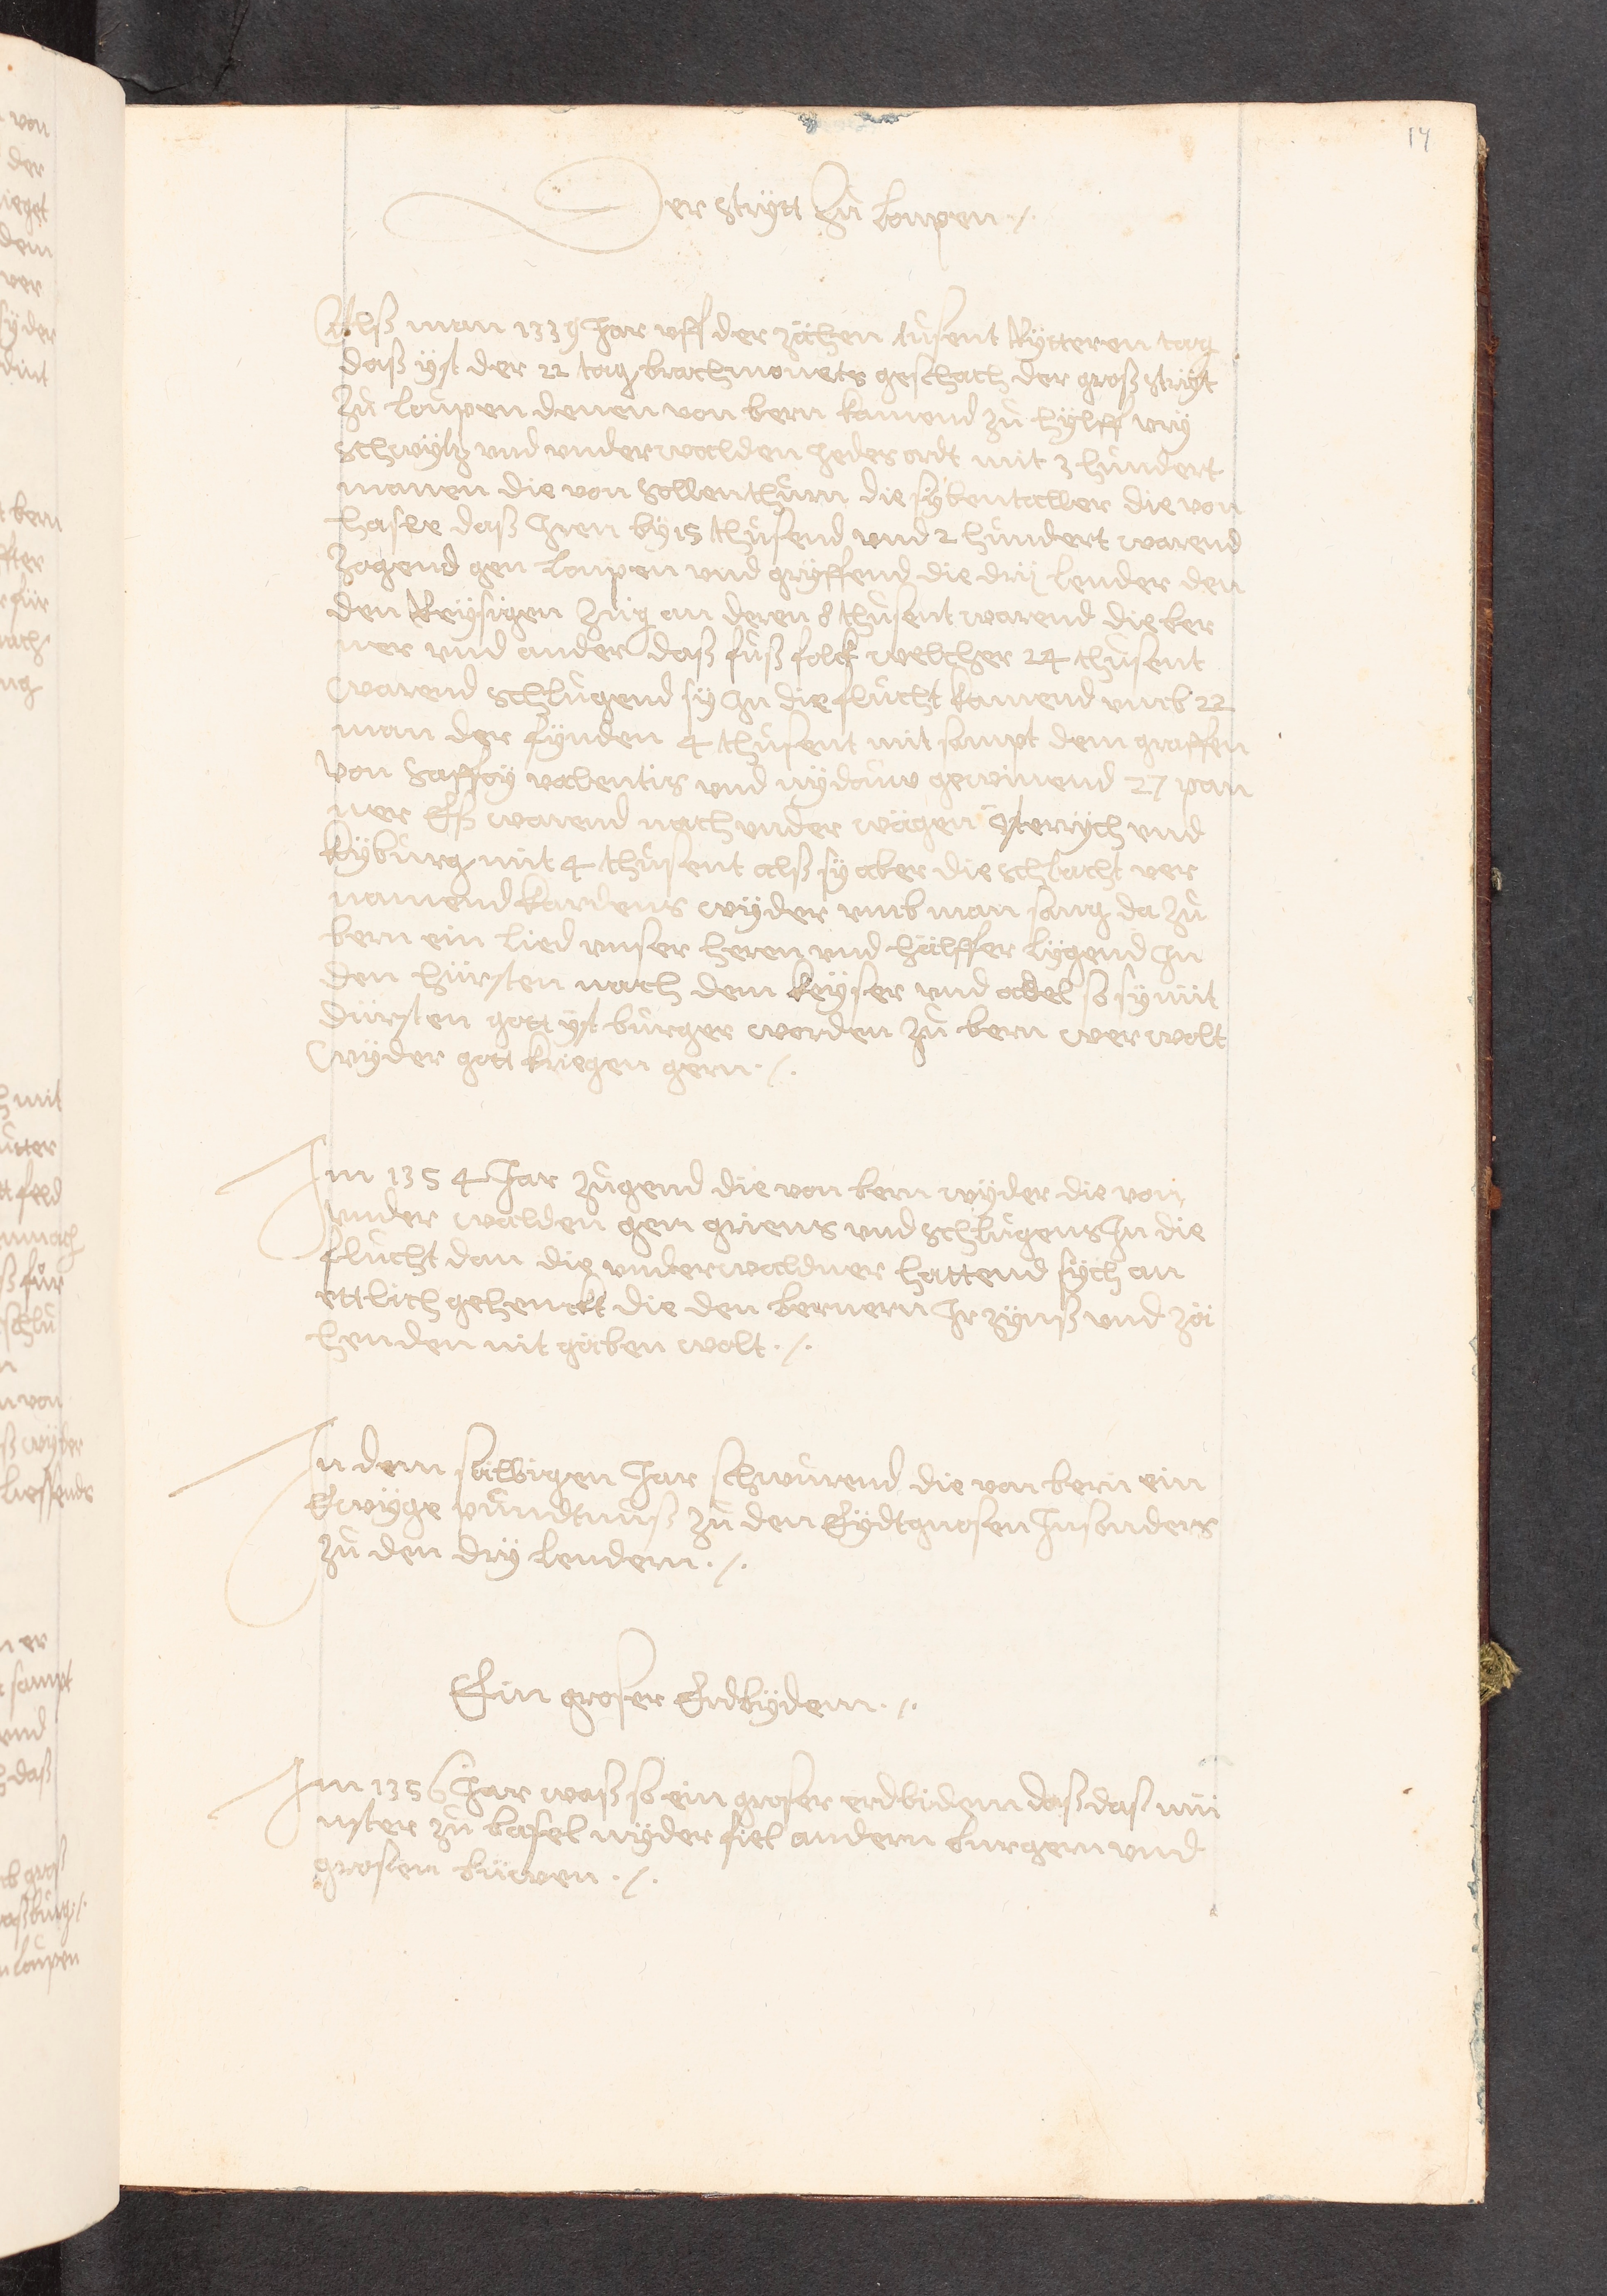 14
Der strytt zů loupen ./.
Alß man 1339 Jar uff der zächen tůsent Rytteren tag
daß yst der 22 tag brachmonets geschach der groß stryt
zů loupen denen von bern kamend zů hylff ury
schwytz und underwalden jedes ordt mit 3 hundert
manen die von sollenthurn die sybentaller die von
hasle daß Jren by 15 thůsend und 2 hundert warend
zogend gen loupen und gryffend die dry lender den
den Reysigen zůg an deren 8 thůsent warend die ber
ner und ander daß fůß folck welcher 24 thůsent
warend schlůgend sy Jn die flucht kamend umb 22
man der fynden 4 thůsent mit sampt dem graffen
von saffoy valentis und nydouw gewinend 27 pan
ner Eß warend nach under wägen österrych und
kyburg mit 4 thůsent alß sy aber die schlacht ver
namend kardens wyder umb man sang da zů
bern ein lied unser heren und hälffer lygend Jn
den hürsten nach dem keyser und adel so sy nüt
dürsten gott yst burger worden zů bern wer wolt
wyder gott kriegen gern ./.
Jm 1354 Jar zugend die von bern wyder die von
under walden gem griens und schlůgens Jn die
flucht dan die underwaldner hattend sych an
ettlich gehenckt die den bernern Jr zynß und zä
henden nit gäben wolt ./.
Jn dem sälbigen Jar schwůrend die von bern ein
Ewyge pündtnuß zů den Eydtgnosen Jnsonders
zů den dry lendern ./.
Ein groser Erdbydem ./.
Jm 1356 Jar waß so ein groser erdbidem daß daß mü
nster zů basel nyder fiel andern burgem und
grosem büwen ./.